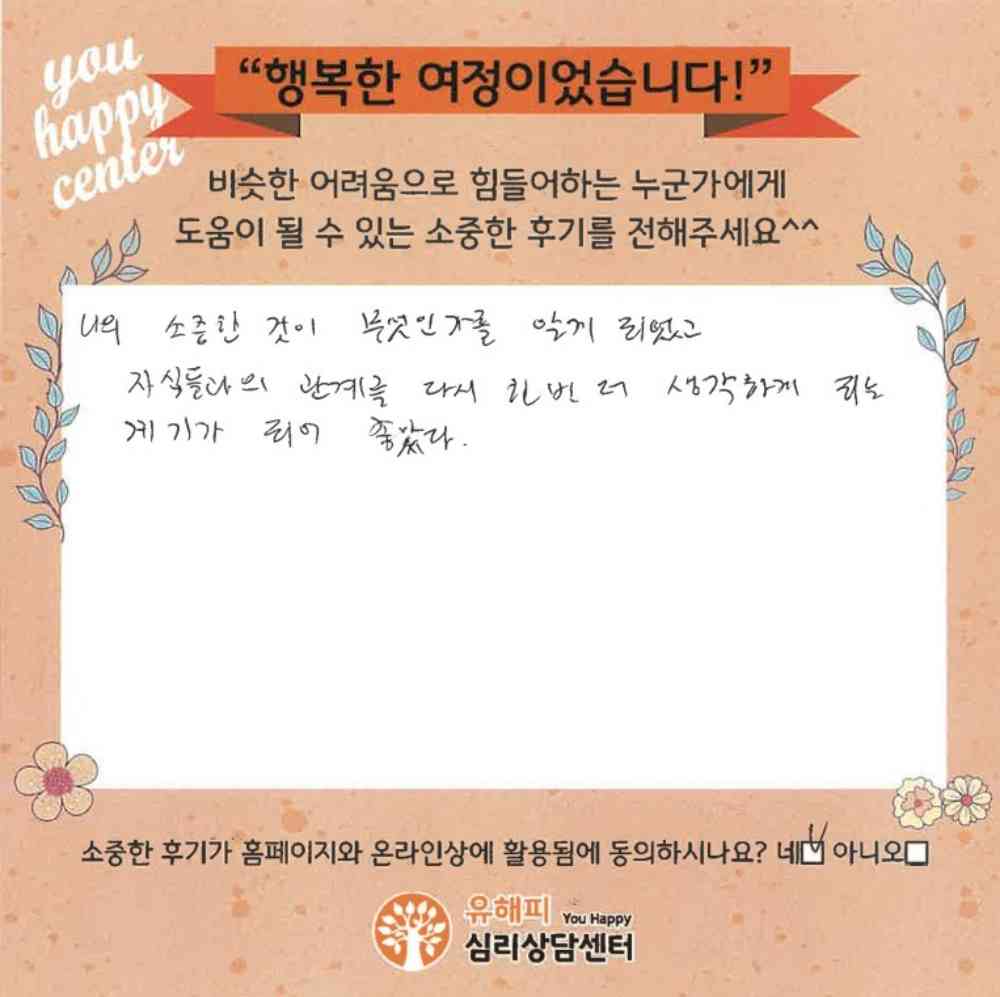 you
happy
center
“행복한 여정이었습니다!”
비슷한 어려움으로 힘들어하는 누군가에게
도움이 될 수 있는 소중한 후기를 전해주세요^^
나의 소중한 것이 무엇인가를 알게 되었고
자식들과의 관계를 다시 한번 더 생각하게 되는
계기가 되어 좋았다.
소중한 후기가 홈페이지와 온라인상에 활용됨에 동의하시나요? 네 아니오
유해피 You Happy
심리상담센터